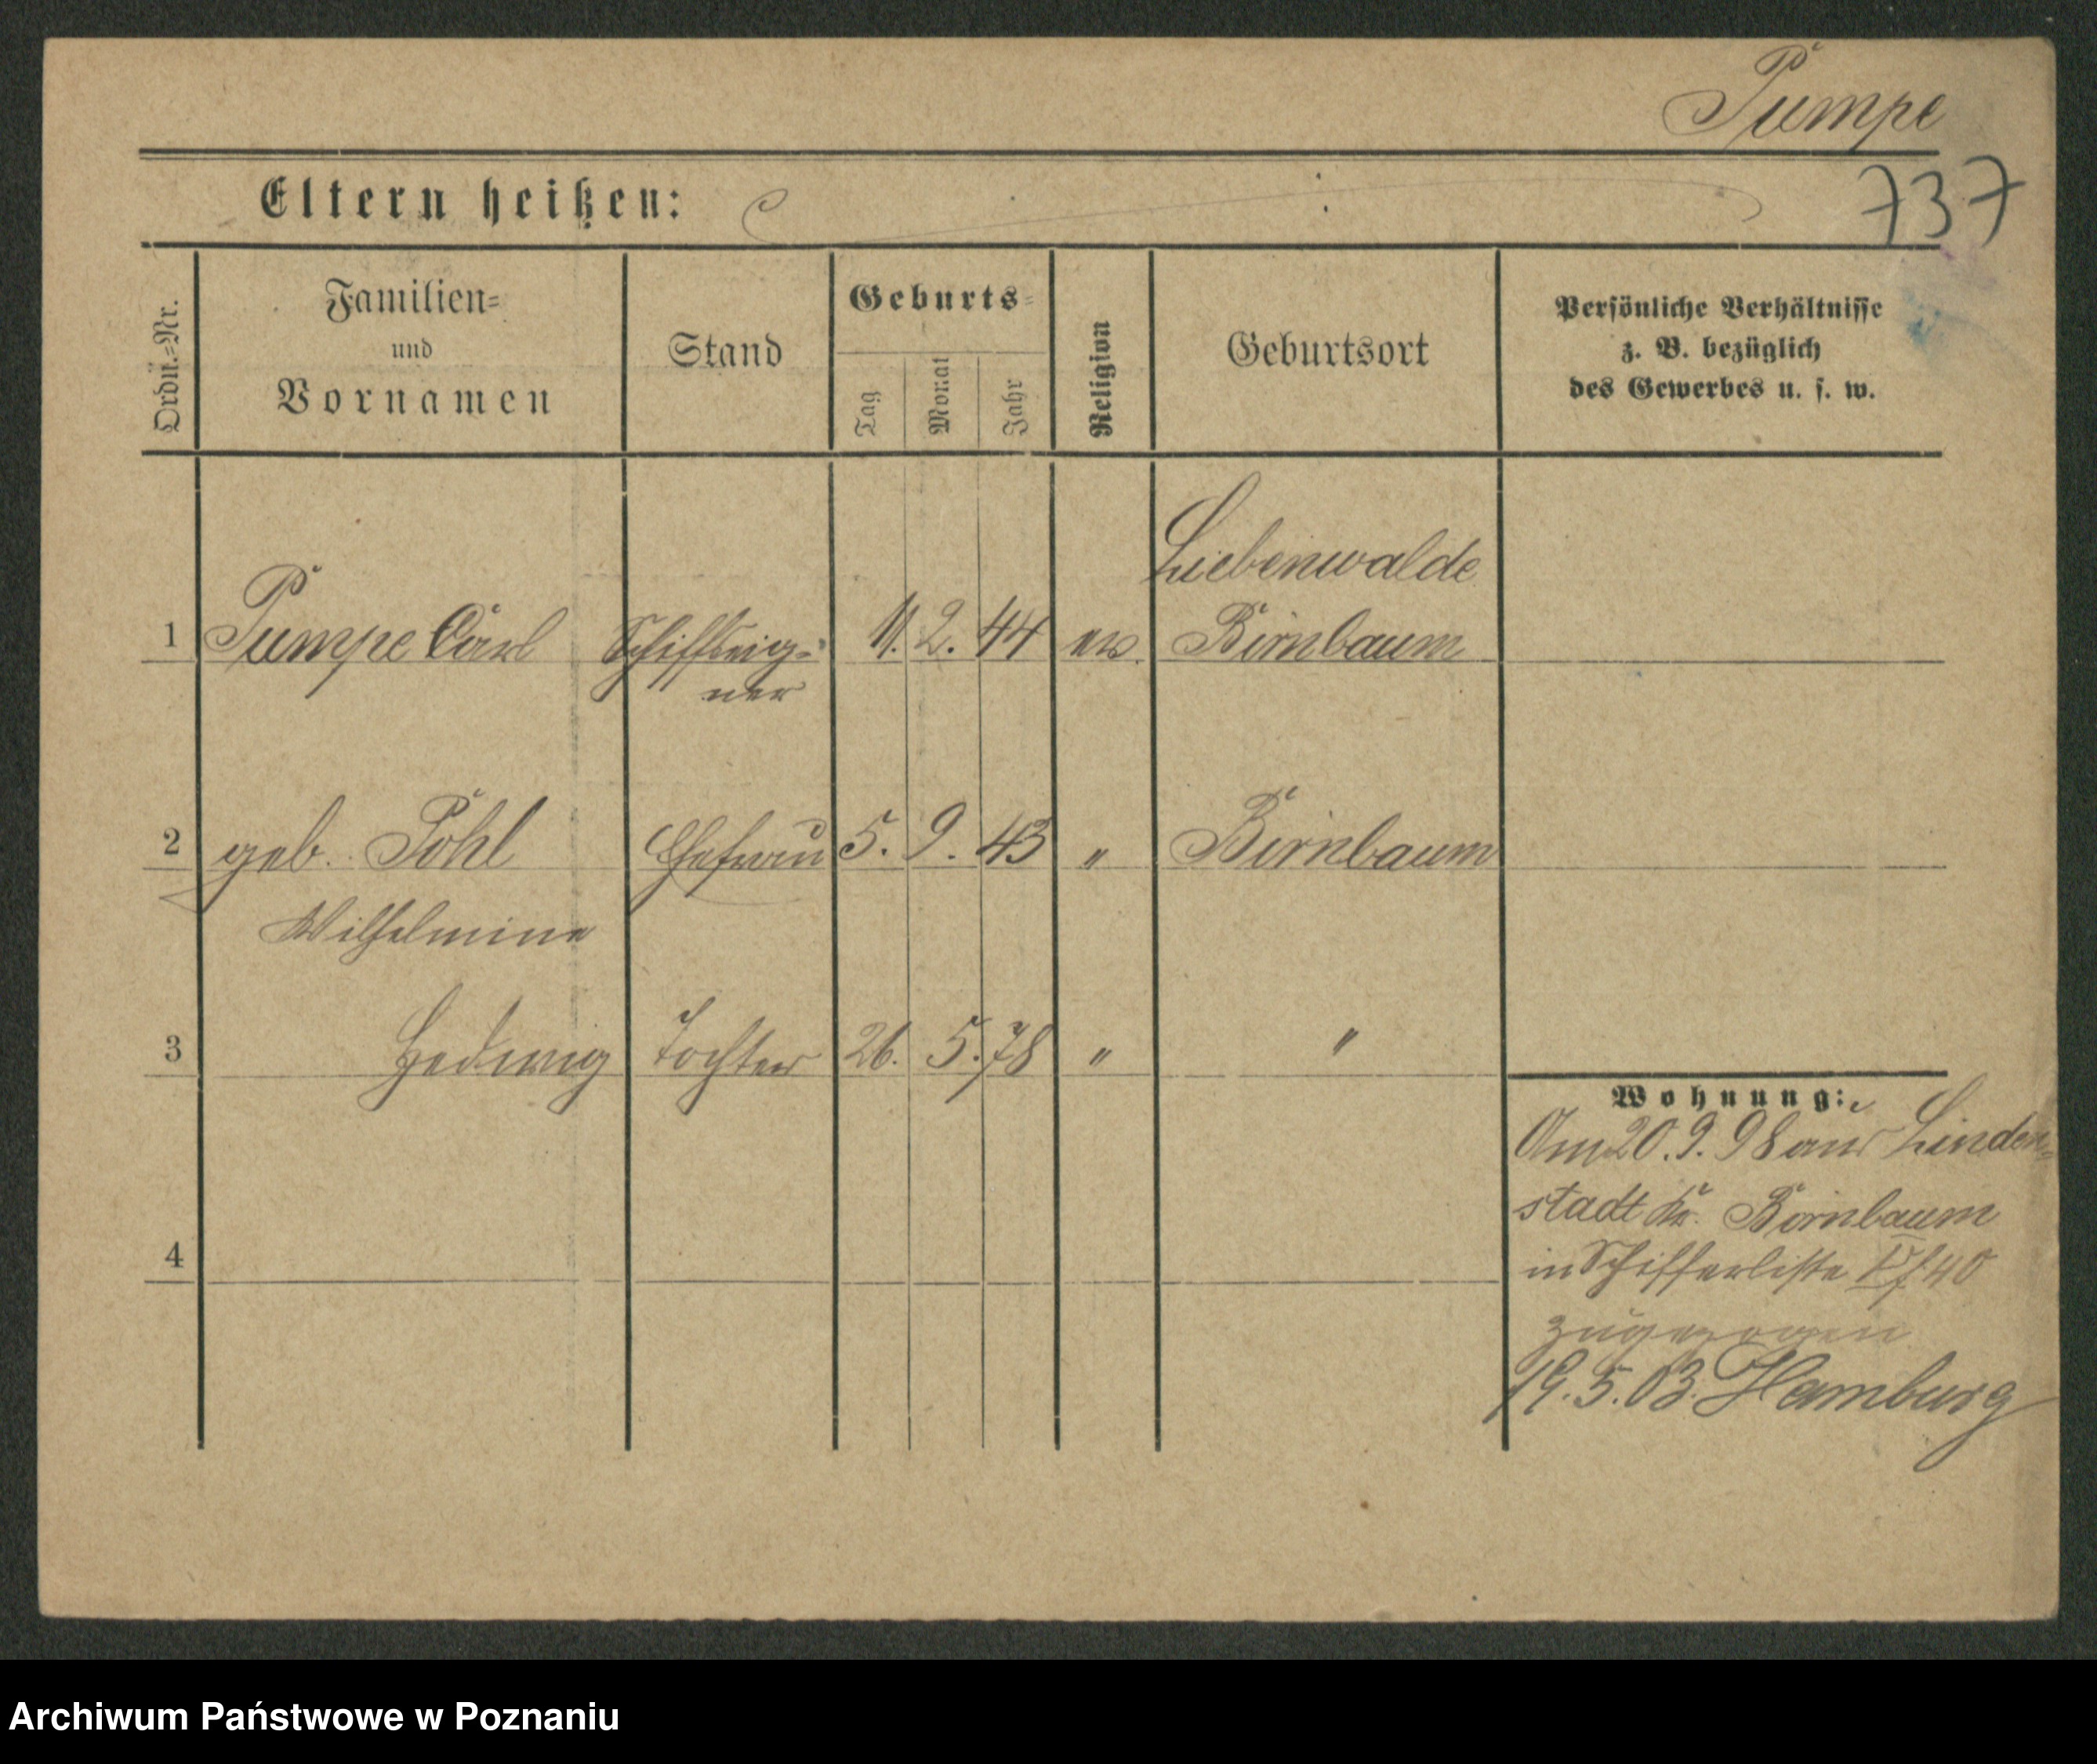 Pumpe
Eltern heißen:
737
Ordn.=Nr.
Familien=
und
Vornamen
Stand
Geburts=
Tag
Monat
Jahr
Religion
Geburtsort
Persönliche Verhältnisse
z. B. bezüglich
des Gewerbes u. s. w.
Liebenwalde
1 Pumpe Carl Schiffseig= 11. 2. 44 ev. Birnbaum
ner
2 geb. Pohl Ehefrau 5. 9. 43 " Birnbaum
Wilhelmine
3 Hedwig Tochter 26. 5. 78 " "
Wohnung:
Am 20. 9. 98 aus Linden=
stadt Kr. Birnbaum
4
in Schifferliste 40
zugezogen
19. 5. 03. Hamburg
Archiwum Państwowe w Poznaniu